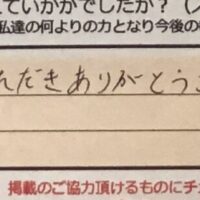 ていかがでしたか？（
私達の何よりの力となり今後の
ただきありがとう
掲載のご協力頂けるものにチ